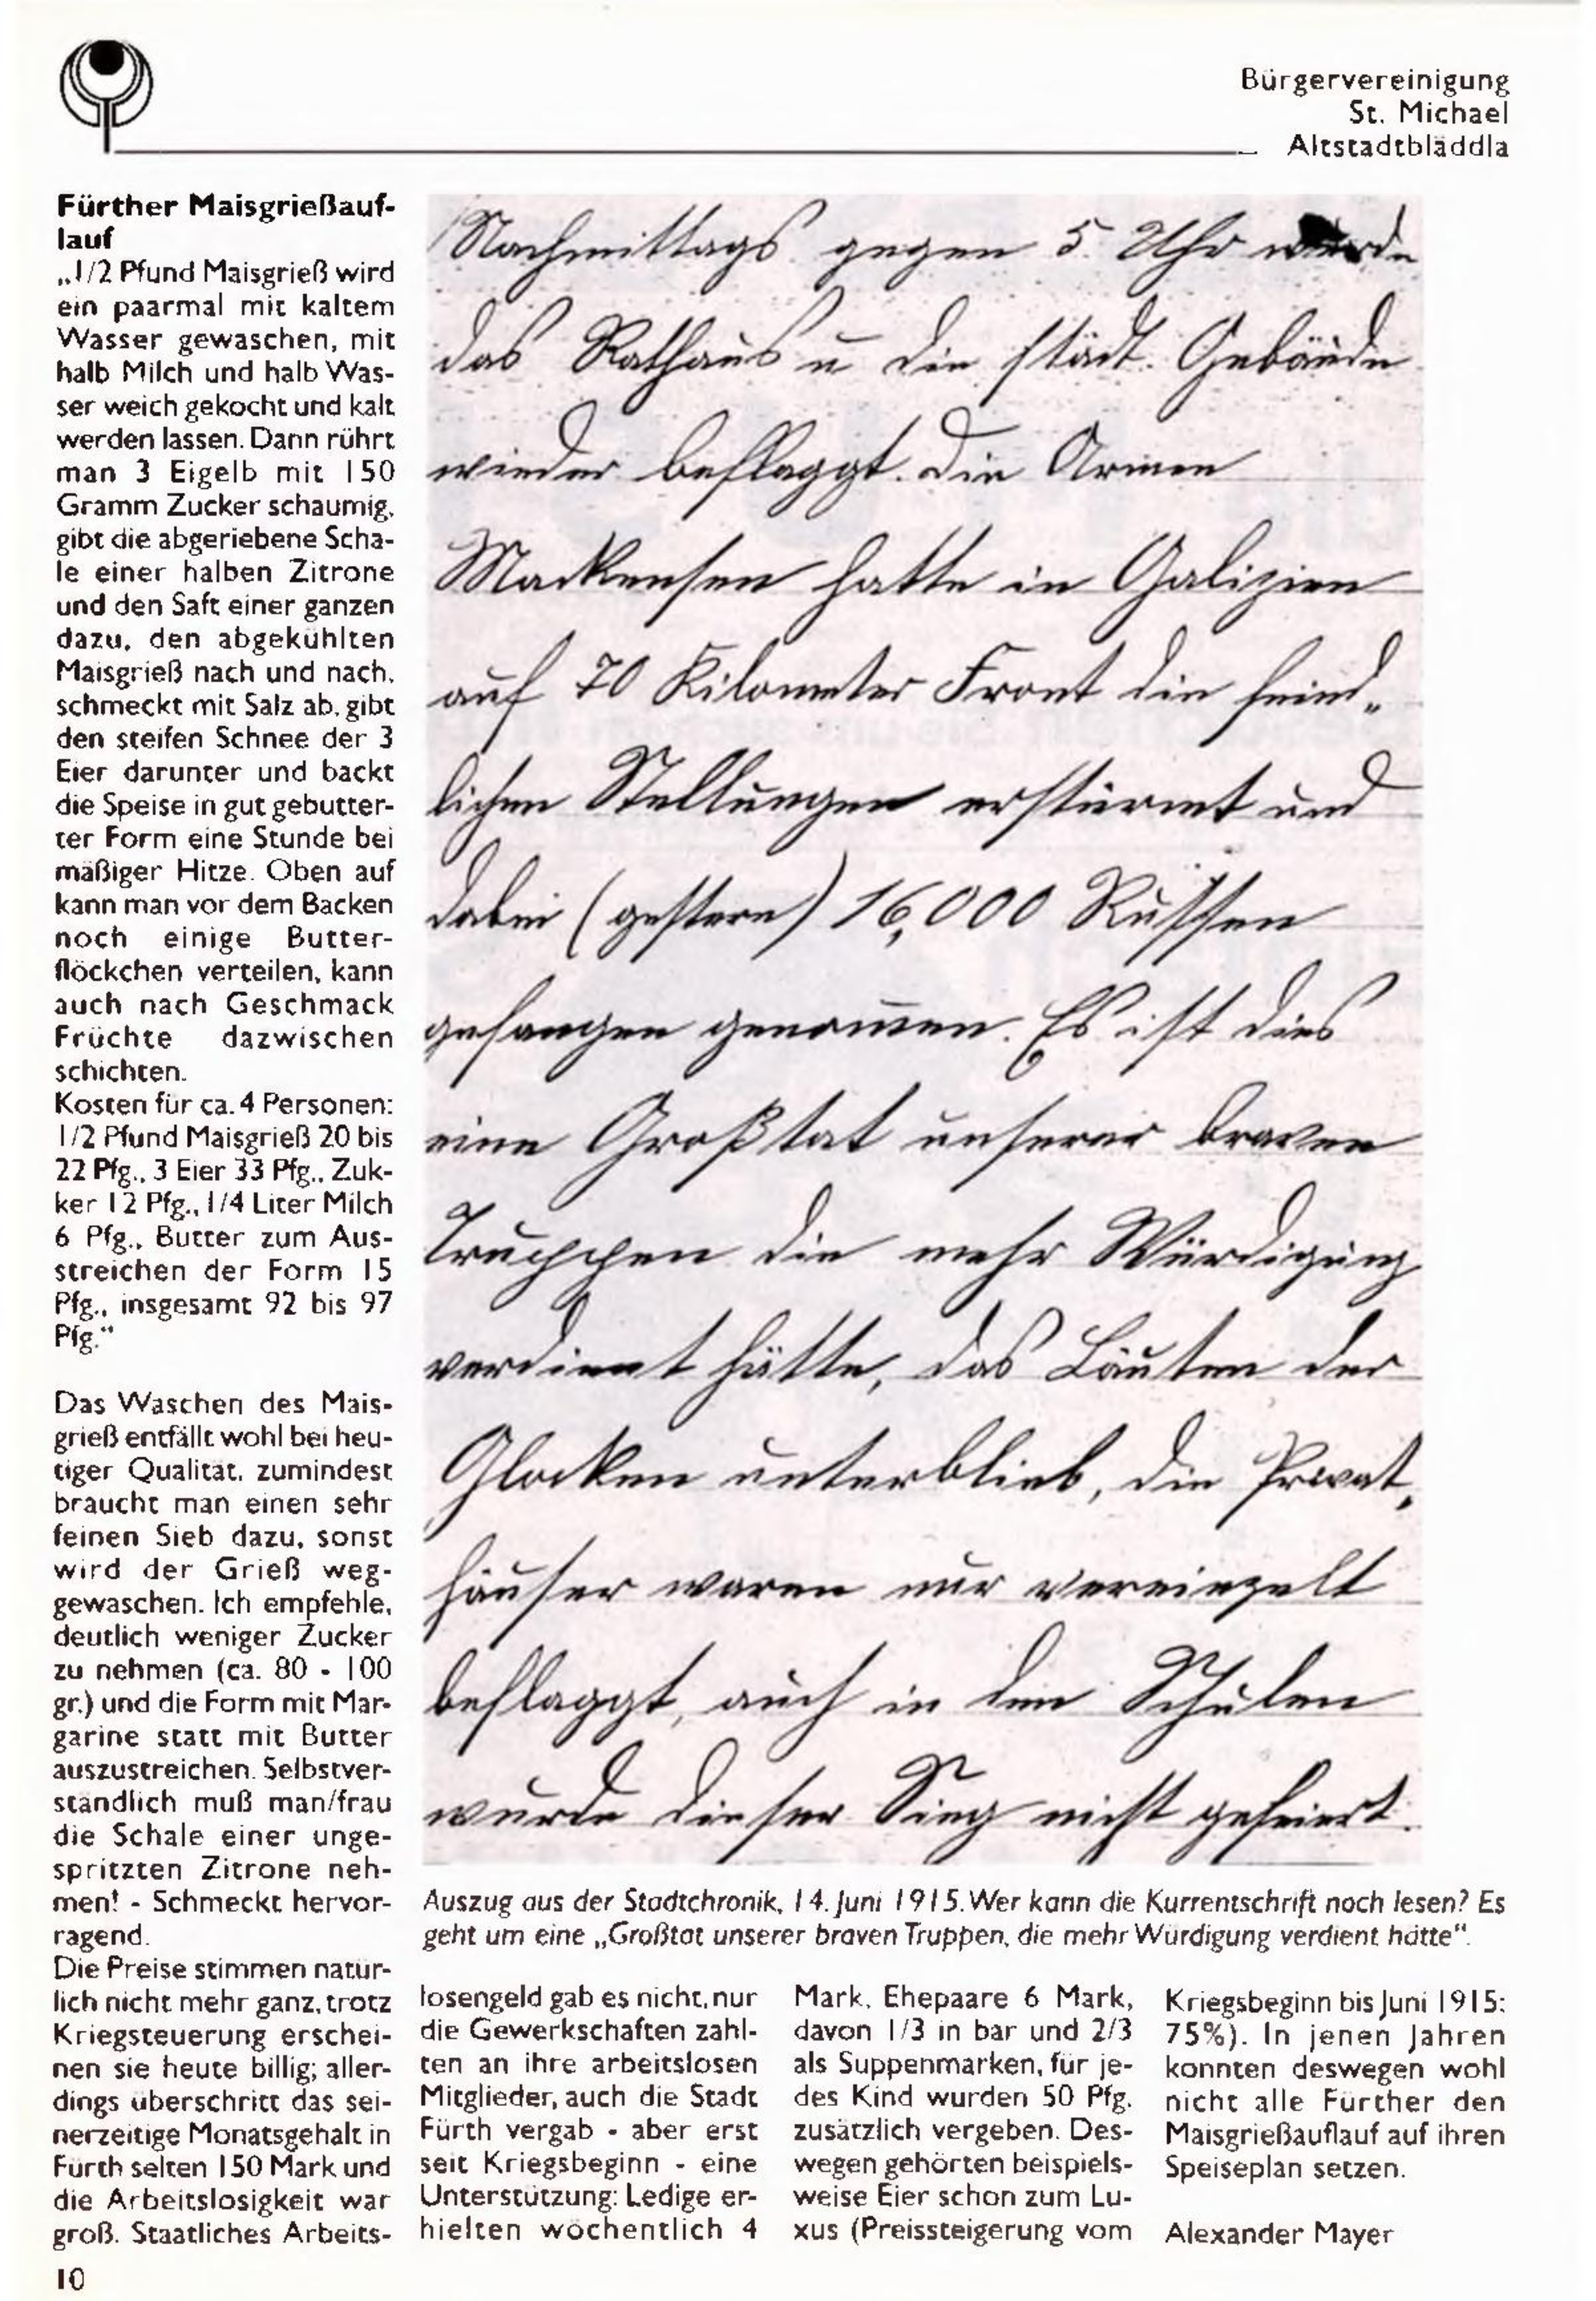 Bürgervereinigung
St. Michael
Altstadtbläddla
Fürther Maisgrießauf-
lauf
„1/2 Pfund Maisgrieß wird
ein paarmal mit kaltem
Wasser gewaschen, mit
halb Milch und halb Was-
ser weich gekocht und kalt
werden lassen. Dann rührt
man 3 Eigelb mit 150
Gramm Zucker schaumig,
gibt die abgeriebene Scha-
le einer halben Zitrone
und den Saft einer ganzen
dazu, den abgekühlten
Maisgrieß nach und nach,
schmeckt mit Salz ab, gibt
den steifen Schnee der 3
Eier darunter und backt
die Speise in gut gebutter-
ter Form eine Stunde bei
mäßiger Hitze. Oben auf
kann man vor dem Backen
noch einige Butter-
flöckchen verteilen, kann
auch nach Geschmack
Früchte dazwischen
schichten.
Kosten für ca. 4 Personen:
1/2 Pfund Maisgrieß 20 bis
22 Pfg., 3 Eier 33 Pfg., Zuk-
ker 12 Pfg., 1/4 Liter Milch
6 Pfg., Butter zum Aus-
streichen der Form 15
Pfg., insgesamt 92 bis 97
Pfg."
Das Waschen des Mais-
grieß entfällt wohl bei heu-
tiger Qualität, zumindest
braucht man einen sehr
feinen Sieb dazu, sonst
wird der Grieß weg-
gewaschen. Ich empfehle,
deutlich weniger Zucker
zu nehmen (ca. 80 - 100
gr.) und die Form mit Mar-
garine statt mit Butter
auszustreichen. Selbstver-
ständlich muß man/frau
die Schale einer unge-
spritzten Zitrone neh-
men! - Schmeckt hervor-
ragend.
Die Preise stimmen natür-
lich nicht mehr ganz, trotz
Kriegsteuerung erschei-
nen sie heute billig; aller-
dings überschritt das sei-
nerzeitige Monatsgehalt in
Fürth selten 150 Mark und
die Arbeitslosigkeit war
groß. Staatliches Arbeits-
Nachmittags gegen 5 Uhr wurde
das Rathaus u die städt. Gebäude
wieder beflaggt. Die Armee
Mackensen hatte in Galizien
auf 70 Kilometer Front die feind-
lichen Stellungen erstürmt und
dabei (gestern) 16,000 Russen
gefangen genom̄en. Es ist dies
eine Großtat unserer braven
Truppen die mehr Würdigung
verdient hätte, das Läuten der
Glocken unterblieb, die Privat-
häuser waren nur vereinzelt
beflaggt, auch in den Schulen
wurde dieser Sieg nicht gefeiert.
Auszug aus der Stadtchronik, 14. Juni 1915. Wer kann die Kurrentschrift noch lesen? Es
geht um eine „Großtat unserer braven Truppen, die mehr Würdigung verdient hätte".
losengeld gab es nicht, nur
die Gewerkschaften zahl-
ten an ihre arbeitslosen
Mitglieder, auch die Stadt
Fürth vergab - aber erst
seit Kriegsbeginn - eine
Unterstützung: Ledige er-
hielten wöchentlich 4
Mark, Ehepaare 6 Mark,
davon 1/3 in bar und 2/3
als Suppenmarken, für je-
des Kind wurden 50 Pfg.
zusätzlich vergeben. Des-
wegen gehörten beispiels-
weise Eier schon zum Lu-
xus (Preissteigerung vom
Kriegsbeginn bis Juni 1915:
75%). In jenen Jahren
konnten deswegen wohl
nicht alle Fürther den
Maisgrießauflauf auf ihren
Speiseplan setzen.
Alexander Mayer
10